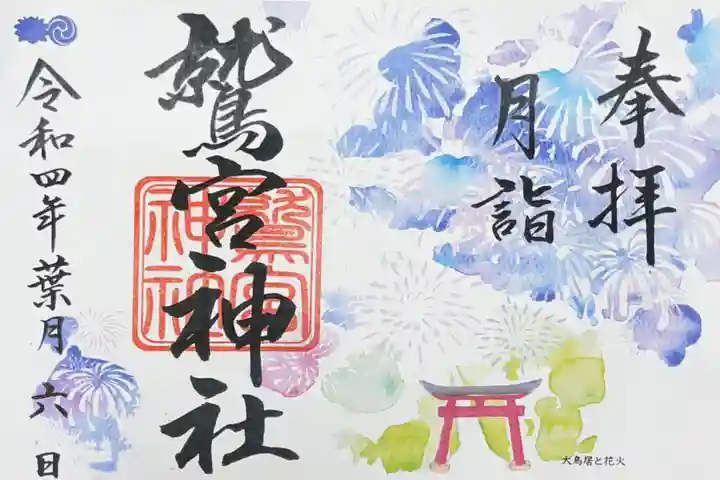 奉拝
月詣
鷲宮神社
鷲宮
神社
令和四年葉月六日
大鳥居と花火